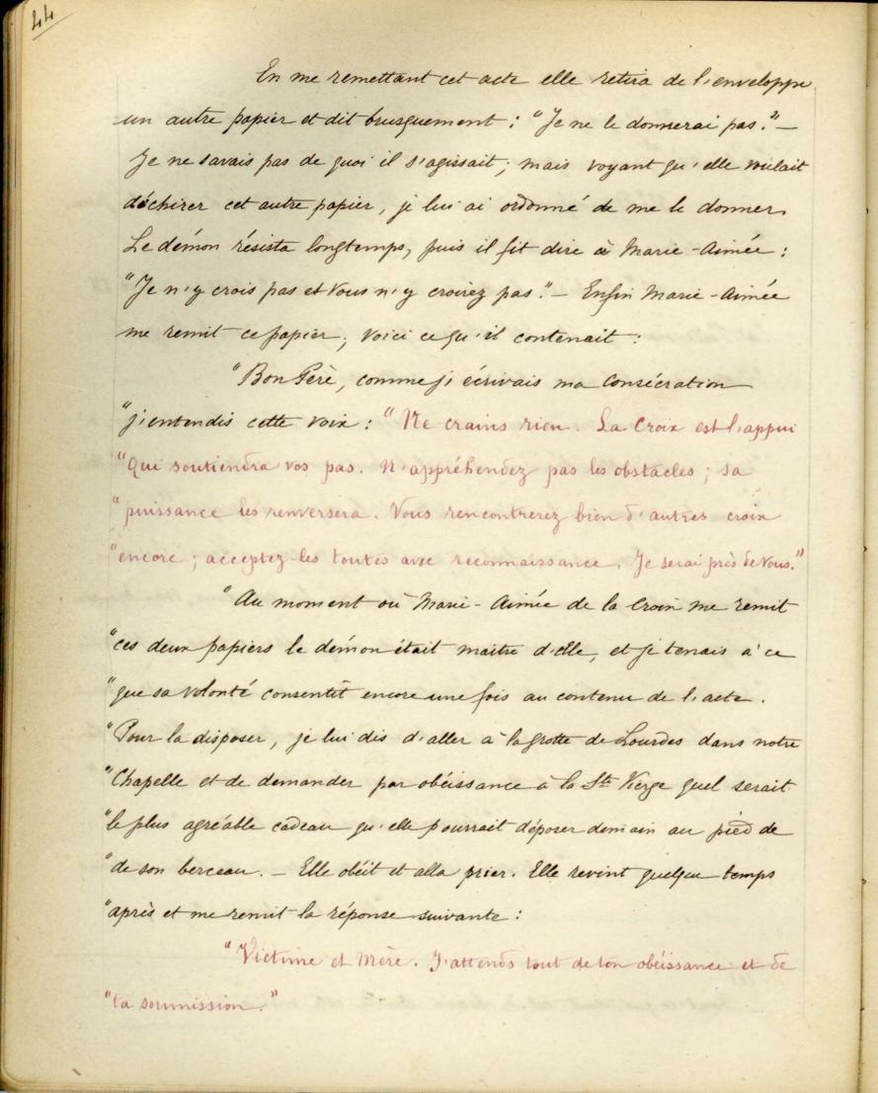 44
En me remettant cet acte elle retira de l'enveloppe
un autre papier et dit brusquement : "Je ne le donnerai pas." —
Je ne savais pas de quoi il s'agissait ; mais voyant qu'elle voulait
déchirer cet autre papier, je lui ai ordonné de me le donner.
Le démon résista longtemps, puis il fit dire à Marie-Aimée :
"Je n'y crois pas et vous n'y croirez pas." — Enfin Marie-Aimée
me remit ce papier ; voici ce qu'il contenait :
"Bon Père, comme j'écrivais ma consécration
"j'entendis cette voix : "Ne crains rien. La Croix est l'appui
"qui soutiendra vos pas. N'appréhendez pas les obstacles ; sa
"puissance les renversera. Vous rencontrerez bien d'autres croix
"encore ; acceptez-les toutes avec reconnaissance. Je serai près de vous."
"Au moment où Marie-Aimée de la Croix me remit
"ces deux papiers le démon était maître d'elle, et je tenais à ce
"que sa volonté consentît encore une fois au contenu de l'acte.
"Pour la disposer, je lui dis d'aller à la grotte de Lourdes dans notre
"Chapelle et de demander par obéissance à la Ste Vierge quel serait
"le plus agréable cadeau qu'elle pourrait déposer demain au pied de
"de son berceau. — Elle obéit et alla prier. Elle revint quelque temps
"après et me remit la réponse suivante :
"Victime et Mère. J'attends tout de ton obéissance et de
"ta soumission."